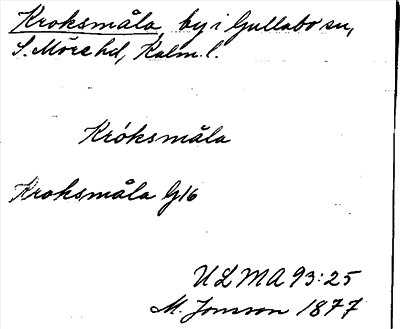 Kroksmåla, by i Gullabo sn,
S. Möre hd, Kalm. l.
Króksmåla
Kroksmåla G16
ULMA 93:25
M. Jonsson 1877